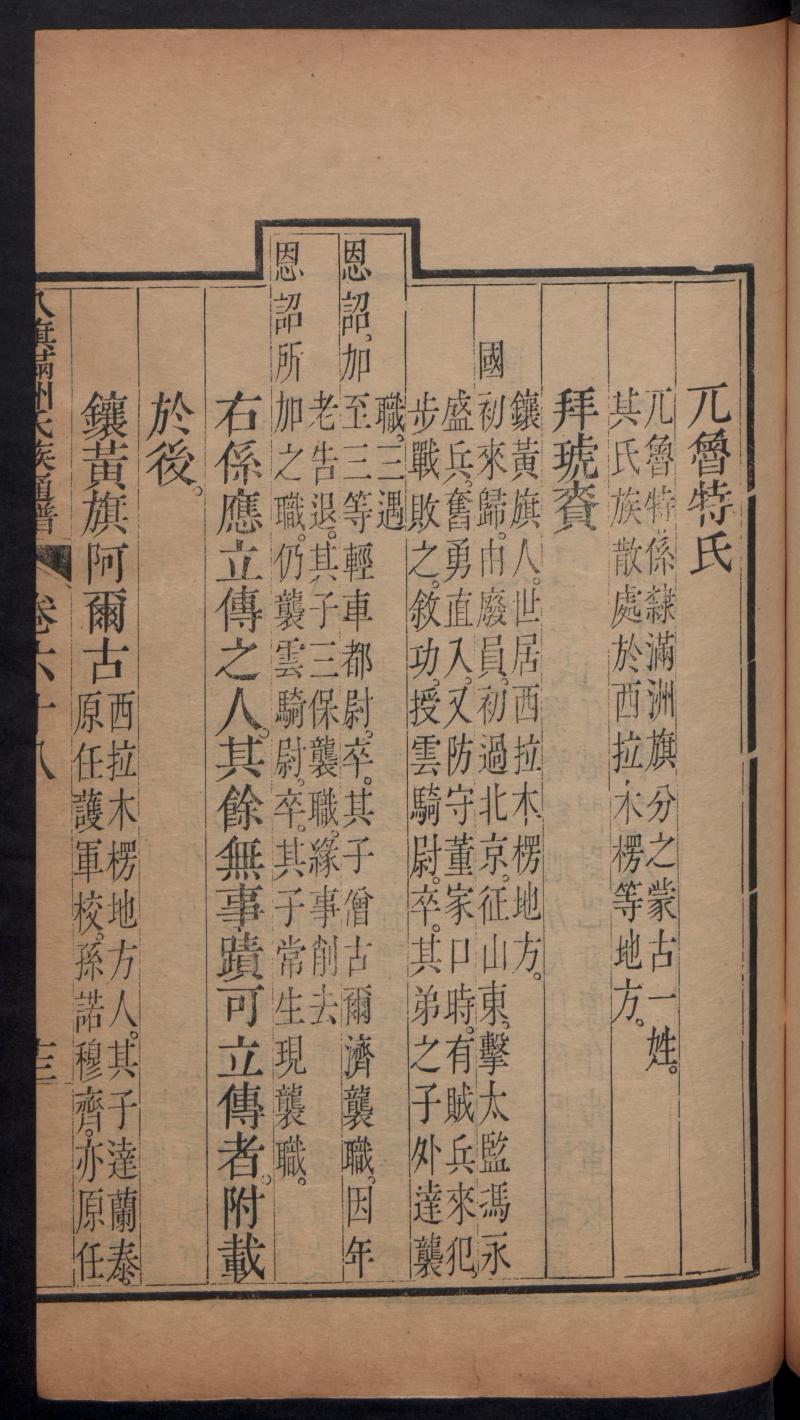 兀魯特氏
兀魯特係隸滿洲旗分之蒙古一姓。
其氏族散處於西拉木楞等地方。
拜琥賚
鑲黃旗人。世居西拉木楞地方。
國初來歸。由廢員。初過北京。征山東。擊太監馮永
盛兵。奮勇直入。又防守董家口時。有賊兵來犯。
步戰敗之。敘功。授雲騎尉。卒。其弟之子外達襲
職。三遇
恩詔。加至三等輕車都尉。卒。其子僧古爾濟襲職。因年
老告退。其子三保襲職。緣事削去
恩詔所加之職。仍襲雲騎尉。卒。其子常生現襲職。
右係應立傳之人。其餘無事蹟可立傳者。附載
於後。
鑲黃旗阿爾古
西拉木楞地方人。其子達蘭泰。
原任護軍校。孫諾穆齊。亦原任
八旗滿洲氏族通譜 卷六十八